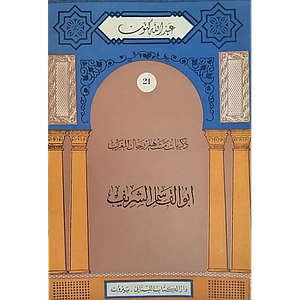 عبد الله كنون
21
ذكريات مشاهير رجال المغرب
ابو القاسم الشريف
دار الكتاب اللبناني - بيروت